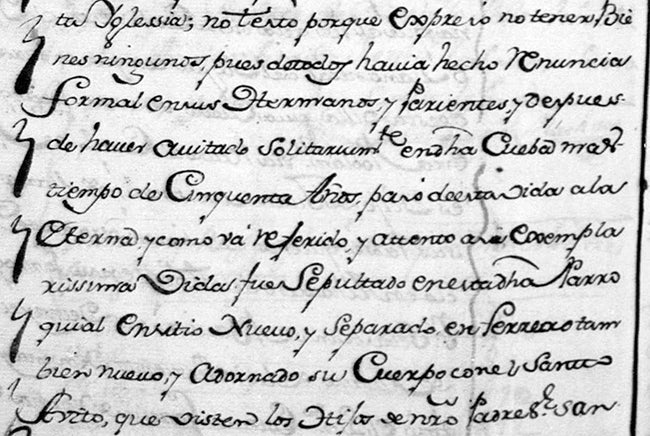 ta Yglessia; no testó porque expresó no tener Bie
nes ningunos, pues de todos havia hecho Renuncia
formal en sus Hermanos, y Parientes, y despues
de haver avitado solitariamte. en dha Cueba mas
tiempo de Cinquenta Años, pasó de esta vida a la
Eterna y como vá referido, y attento a su exempla
rissima Vida fue Sepultado en esta dha Parro
quial en sitio Nuevo, y separado, en ferretro tam
bien nuevo, y Adornado su Cuerpo con el Santto
Avito, que visten los Hijos de nro Padre Sr. San